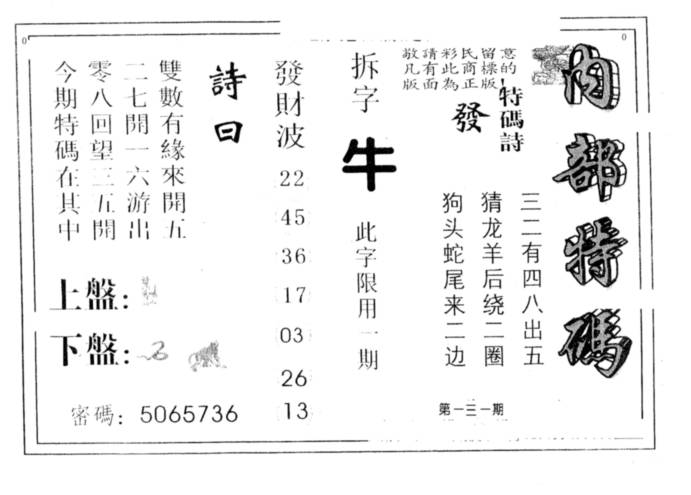 內部特碼
敬請彩民留意
凡有此商標的
版面為正版!
特碼詩
發
三二有四八出五
猜龙羊后绕二圈
狗头蛇尾来二边
第一三一期
拆字
牛
此字限用一期
發財波
22
45
36
17
03
26
13
詩曰
雙數有緣來開五
二七開一六游出
零八回望三五開
今期特碼在其中
上盤:
下盤:
密碼: 5065736